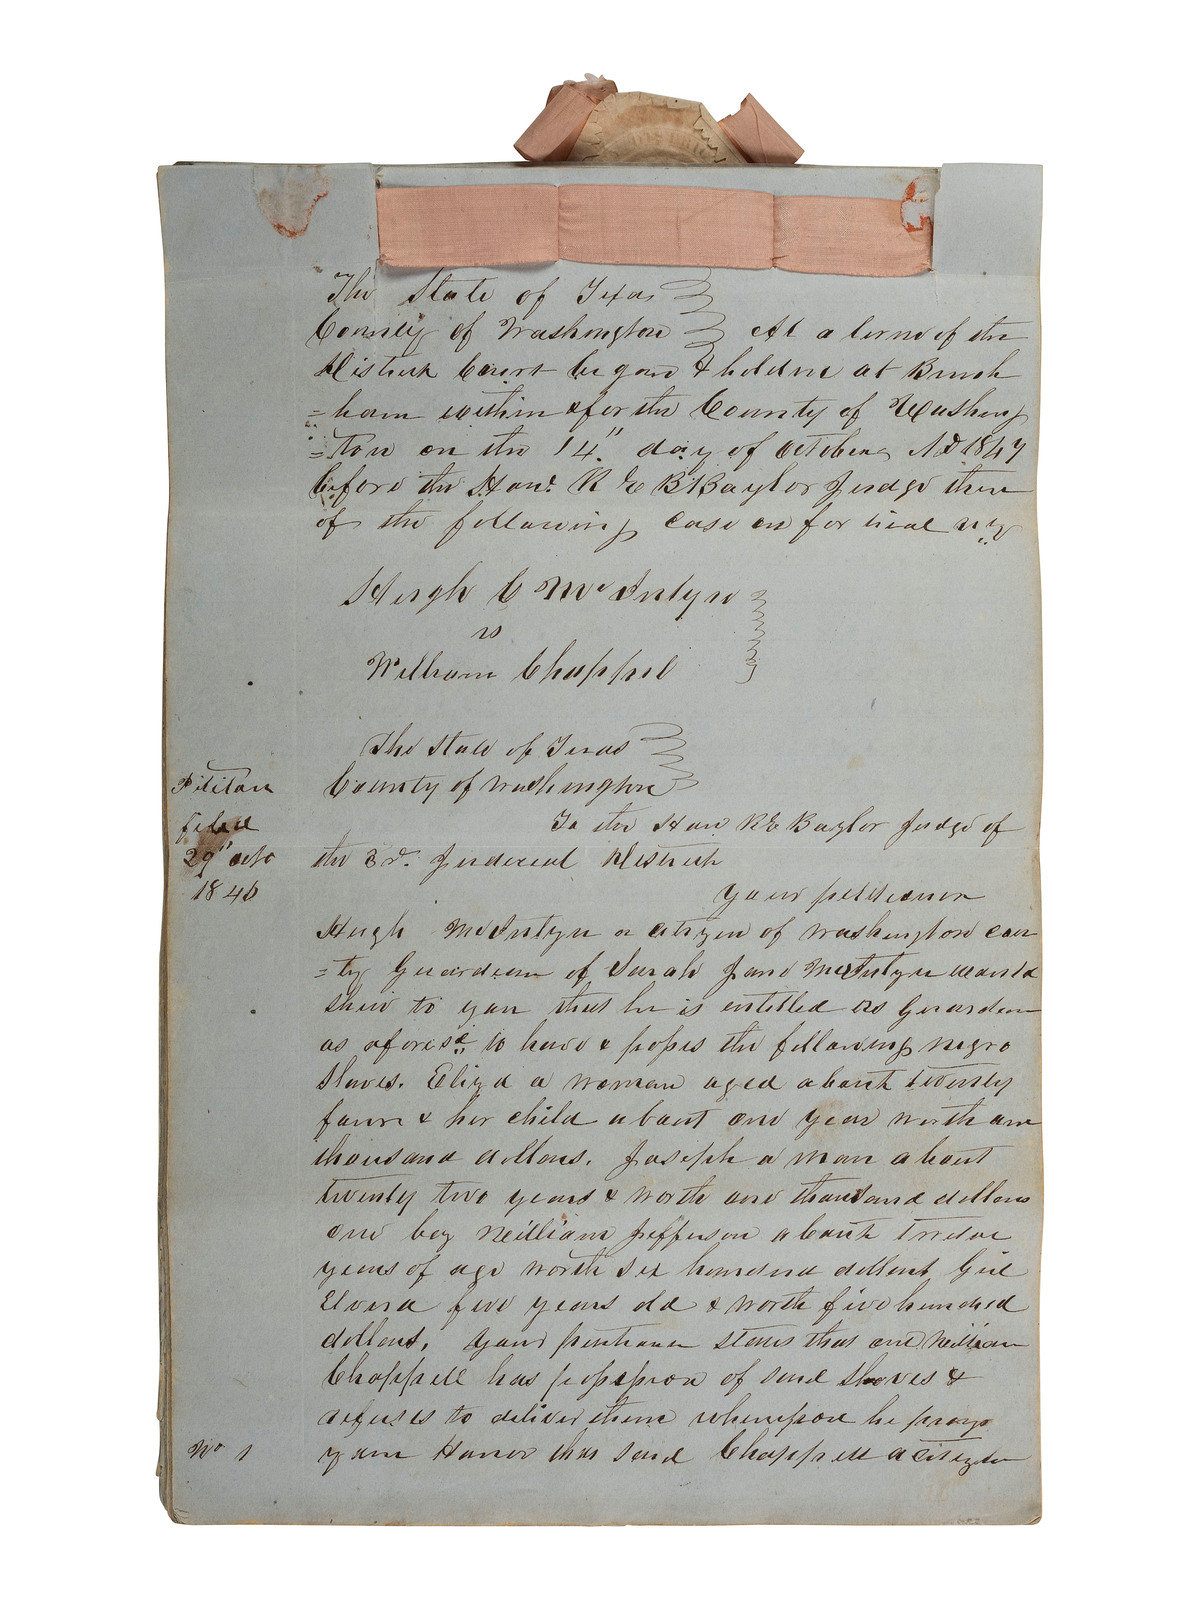 The State of Texas
County of Washington At a term of the
District Court begun & holden at Bren
=ham within & for the County of Washing
=ton on the 14" day of October AD 1847
before the Hon. R E B Baylor Judge there
of the following case on for trial viz
Hugh C McIntyre
vs
William Chappell
The State of Texas
County of Washington
Petition
filed
29" octo
1846
To the Hon R E Baylor Judge of
the 3rd. Juderial District
your petitioner
Hugh McIntyre a citizen of Washington coun
=ty Guardian of Sarah Jane McIntyre would
shew to you that he is entitled as Guardian
as aforesd to have & posses the following negro
Slaves. Eliza a woman aged about twenty
four & her child about one year worth one
thousand dollars. Joseph a man about
twenty two years & worth one thousand dollars
one boy William Jefferson about twelve
years of age worth six hundred dollars Girl
Elvira five years old & worth five hundred
dollars. Your petitioner states that one William
Chappell has possession of said slaves &
refuses to deliver them whereupon he prays
your Honor that said Chappell a citizen
No 1